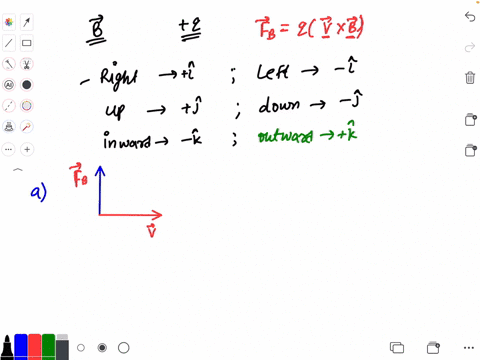 B⃗ +q F⃗_B = q(V⃗ × B⃗)
- Right → +î ; Left → -î
up → +ĵ ; down → -ĵ
inward → -k̂ ; outward → +k̂
a) F⃗_B
V⃗